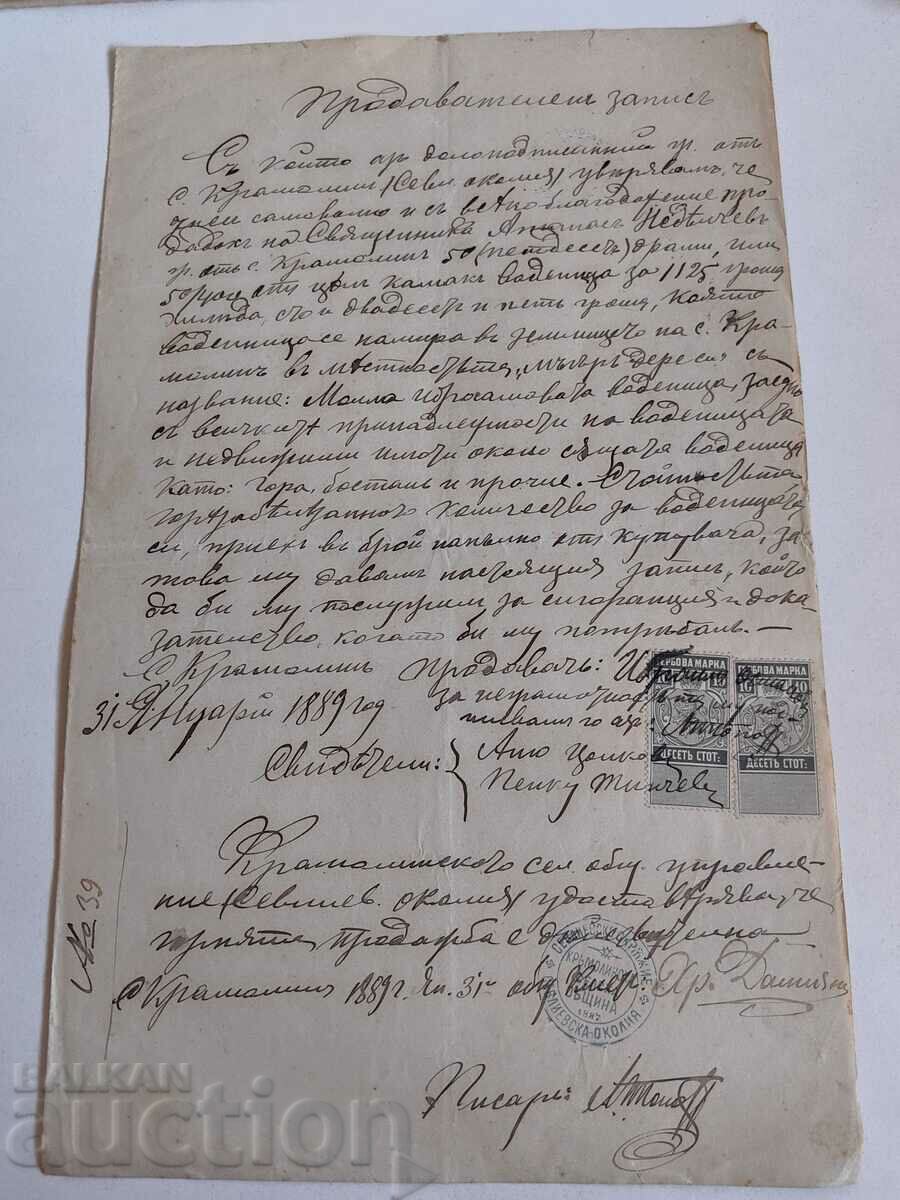 Продавателенъ записъ
Съ който азъ долоподписаний гр. отъ
с. Крамолинъ /Севл. околия/ увѣрявамъ, че
днес самоволно и съ благодарение про-
дадохъ на Священника Недѣлчевъ
гр. отъ с. Крамолинъ 50 (петдесетъ) драми, или
50 отъ цѣлъ камакъ воденица за 1125 гроша
хиляда, сто и двадесетъ и петь гроша, която
воденица се намира въ землището на с. Кра-
молинъ въ мѣстностьта „ дереси" съ
название: Молла воденица, заедно
съ всичкитѣ принадлежности на воденицата
и недвижими имоти около сѫщата воденица
като: гора, бостанъ и прочие. Стойностьта
количество за воденицата
си, приехъ въ брой напълно отъ купувача, за
това му давамъ настоящия записъ, който
да би му послужил за сигоранция и дока-
зателство, когато би му потрѣбалъ. —
с. Крамолинъ продавачъ:
31 Януарий 1889 год
за неграмо
го азъ:
Свидѣтели: Цонковъ
Пенку
ГЕРБОВА МАРКА
10 10
ДЕСЕТЬ СТОТ:
ГЕРБОВА МАРКА
10 10
ДЕСЕТЬ СТОТ:
Крамолинското сел. общ. управле-
ние /Севлиев. околия/ удостовѣрява, че
горнята продажба е действителна
с. Крамолинъ 1889 г. Ян. 31 общ. Кмет: Хр.
ОБЩИНА
1887
СЕВЛИЕВСКА ОКОЛИЯ
Писарь:
№ 39
BALKAN
auction